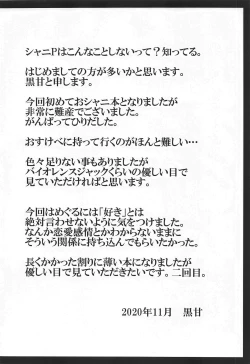 シャニPはこんなことしないって？知ってる。
はじめましての方が多いかと思います。
黒甘と申します。
今回初めておシャニ本となりましたが
非常に難産でございました。
がんばってひりだした。
おすけべに持って行くのがほんと難しい…
色々足りない事もありましたが
バイオレンスジャックくらいの優しい目で
見ていただければと思います。
今回はめぐるには「好き」とは
絶対言わせないように気をつけました。
なんか恋愛感情とかわからないままに
そういう関係に持ち込んでもらいたかった。
長くかかった割りに薄い本になりましたが
優しい目で見ていただきたいです。二回目。
2020年11月　黒甘